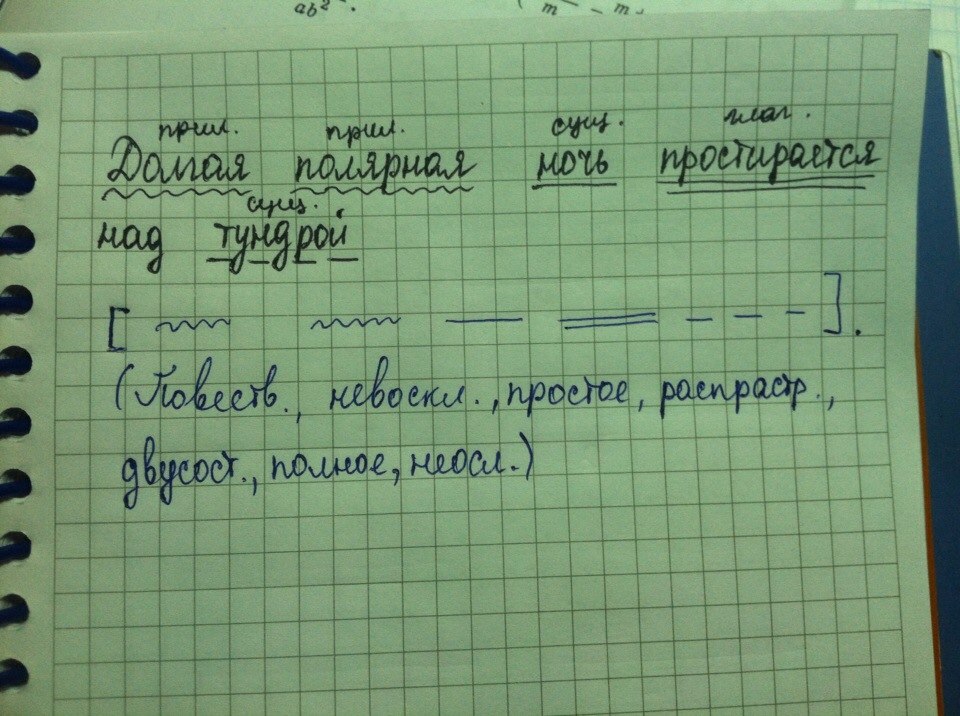 ab²
m - m
прил. прил. сущ. глаг.
Долгая полярная ночь простирается
сущ.
над тундрой
[ ].
(Повеств., невоскл., простое, распрастр.,
двусост., полное, неосл.)